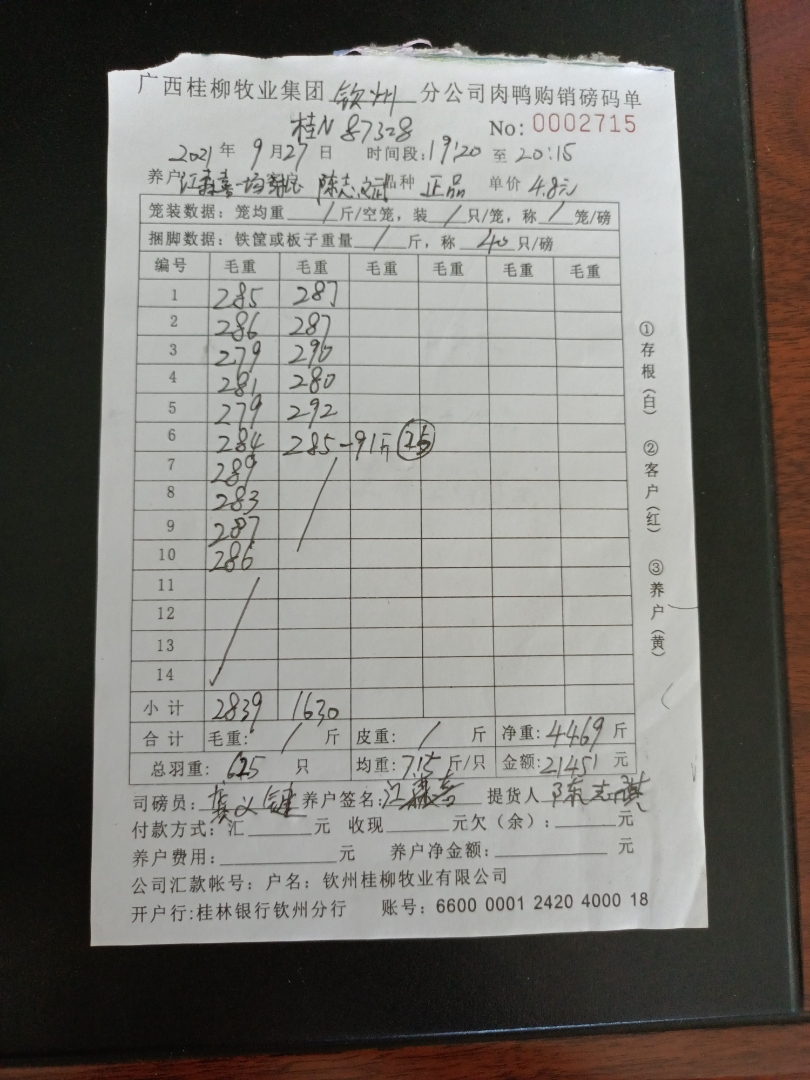 广西桂柳牧业集团 钦州 分公司肉鸭购销磅码单
桂N 87328 No: 0002715
2021年 9月27日 时间段:19:20 至 20:15
养户 江森喜一场 陈志斌 品种 正品 单价 4.8元
笼装数据:笼均重 / 斤/空笼,装 / 只/笼,称 / 笼/磅
捆脚数据:铁筐或板子重量 / 斤,称 40 只/磅
编号 毛重 毛重 毛重 毛重 毛重 毛重
1 285 287
2 286 287
3 279 290
4 281 280
5 279 292
6 284 285-91斤
7 289
8 283
9 287
10 286
11
12
13
14
小计 2839 1630
合计 毛重: / 斤 皮重: / 斤 净重:4469 斤
总羽重: 625 只 均重:7.15 斤/只 金额:21451 元
司磅员: 养户签名:江森喜 提货人 陈志
付款方式:汇 元 收现 元欠(余): 元
养户费用: 元 养户净金额: 元
公司汇款帐号:户名:钦州桂柳牧业有限公司
开户行:桂林银行钦州分行 账号:6600 0001 2420 4000 18
①存根(白) ②客户(红) ③养户(黄)